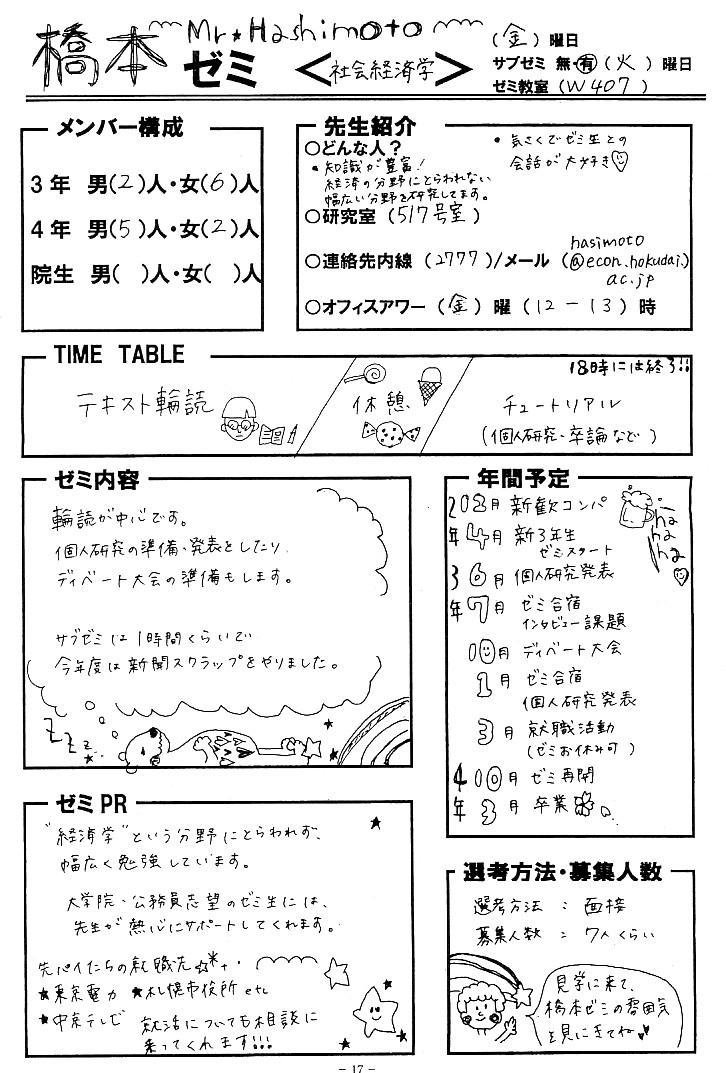 橋本 Mr★Hashimoto
ゼミ <社会経済学>
(金)曜日
サブゼミ 無・有(火)曜日
ゼミ教室(W407)
メンバー構成
3年 男(2)人・女(6)人
4年 男(5)人・女(2)人
院生 男( )人・女( )人
先生紹介
○どんな人?
・知識が豊富!
経済の分野にとらわれない
幅広い分野を研究してます。
・気さくでゼミ生との
会話が大好き
○研究室(517号室)
○連絡先内線(2777)/メール(hasimoto
@econ.hokudai.)
ac.jp
○オフィスアワー(金)曜(12-13)時
TIME TABLE
テキスト輪読
休憩
18時には終了!!
チュートリアル
(個人研究・卒論など)
ゼミ内容
輪読が中心です。
個人研究の準備・発表としたり
ディベート大会の準備もします。
サブゼミは1時間くらいで
今年度は新聞スクラップをやりました。
ZZZz...
年間予定
2年
月 新歓コンパ
4月 新3年生
ゼミスタート
3年
6月 個人研究発表
7月 ゼミ合宿
インタビュー課題
10月 ディベート大会
1月 ゼミ合宿
個人研究発表
3月 就職活動
(ゼミお休み可)
4年
10月 ゼミ再開
3月 卒業
ha
ha
ha
ゼミPR
"経済学"という分野にとらわれず、
幅広く勉強しています。
大学院・公務員志望のゼミ生には、
先生が熱心にサポートしてくれます。
先パイたちの就職先
★東京電力 ★札幌市役所 etc
★中京テレビ
就活についても相談に
乗ってくれます!!!
選考方法・募集人数
選考方法 : 面接
募集人数 : 7人くらい
見学に来て、
橋本ゼミの雰囲気
を見にきてね
- 17 -